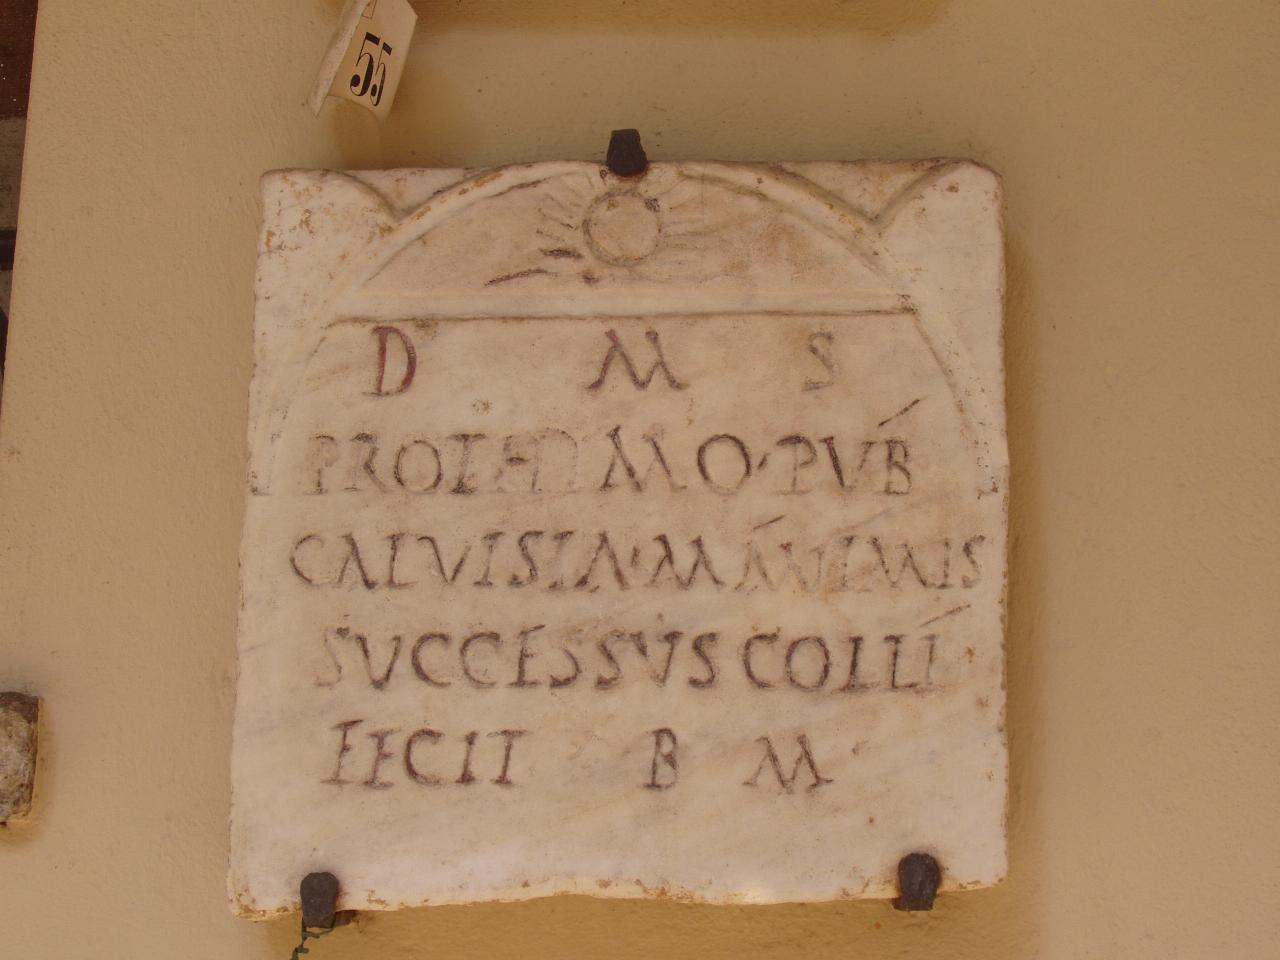 55
D M S
PROTHYMO PVB
CALVISIA MANIMIS
SVCCESSVS COLLI
FECIT B M